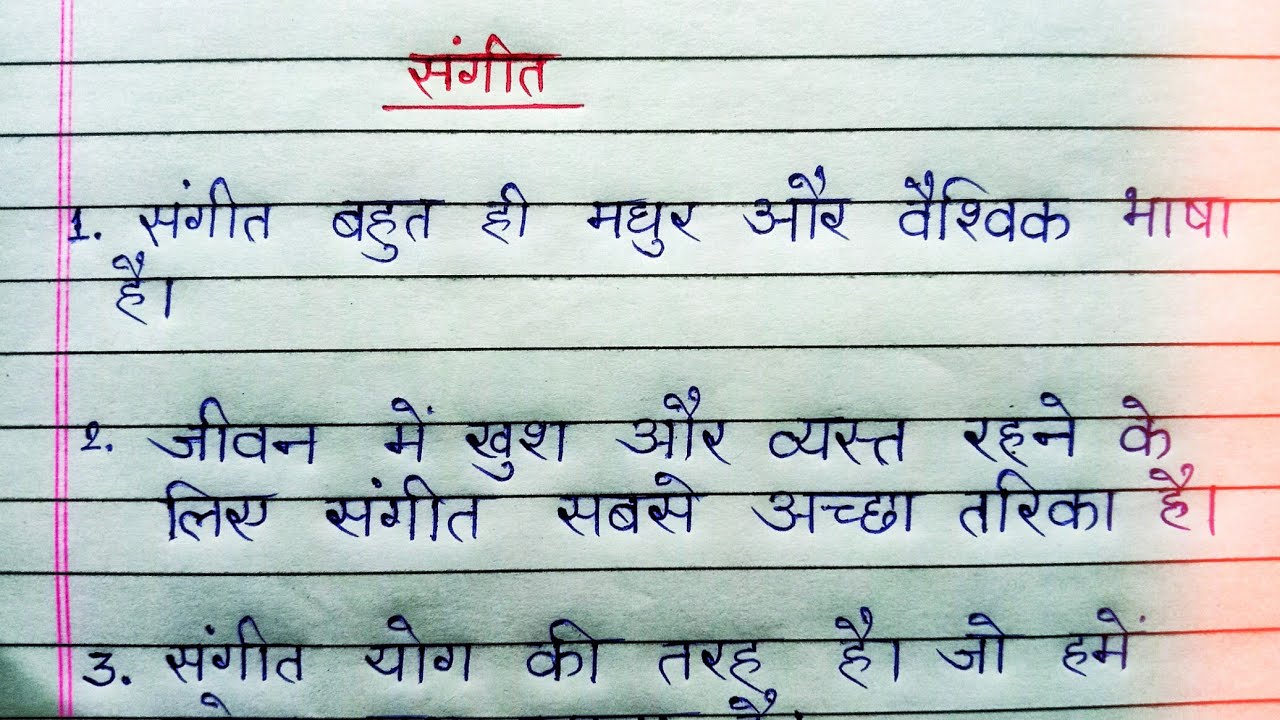 संगीत
1. संगीत बहुत ही मधुर और वैश्विक भाषा
है।
2. जीवन में खुश और व्यस्त रहने के
लिए संगीत सबसे अच्छा तरिका है।
3. संगीत योग की तरह है। जो हमें